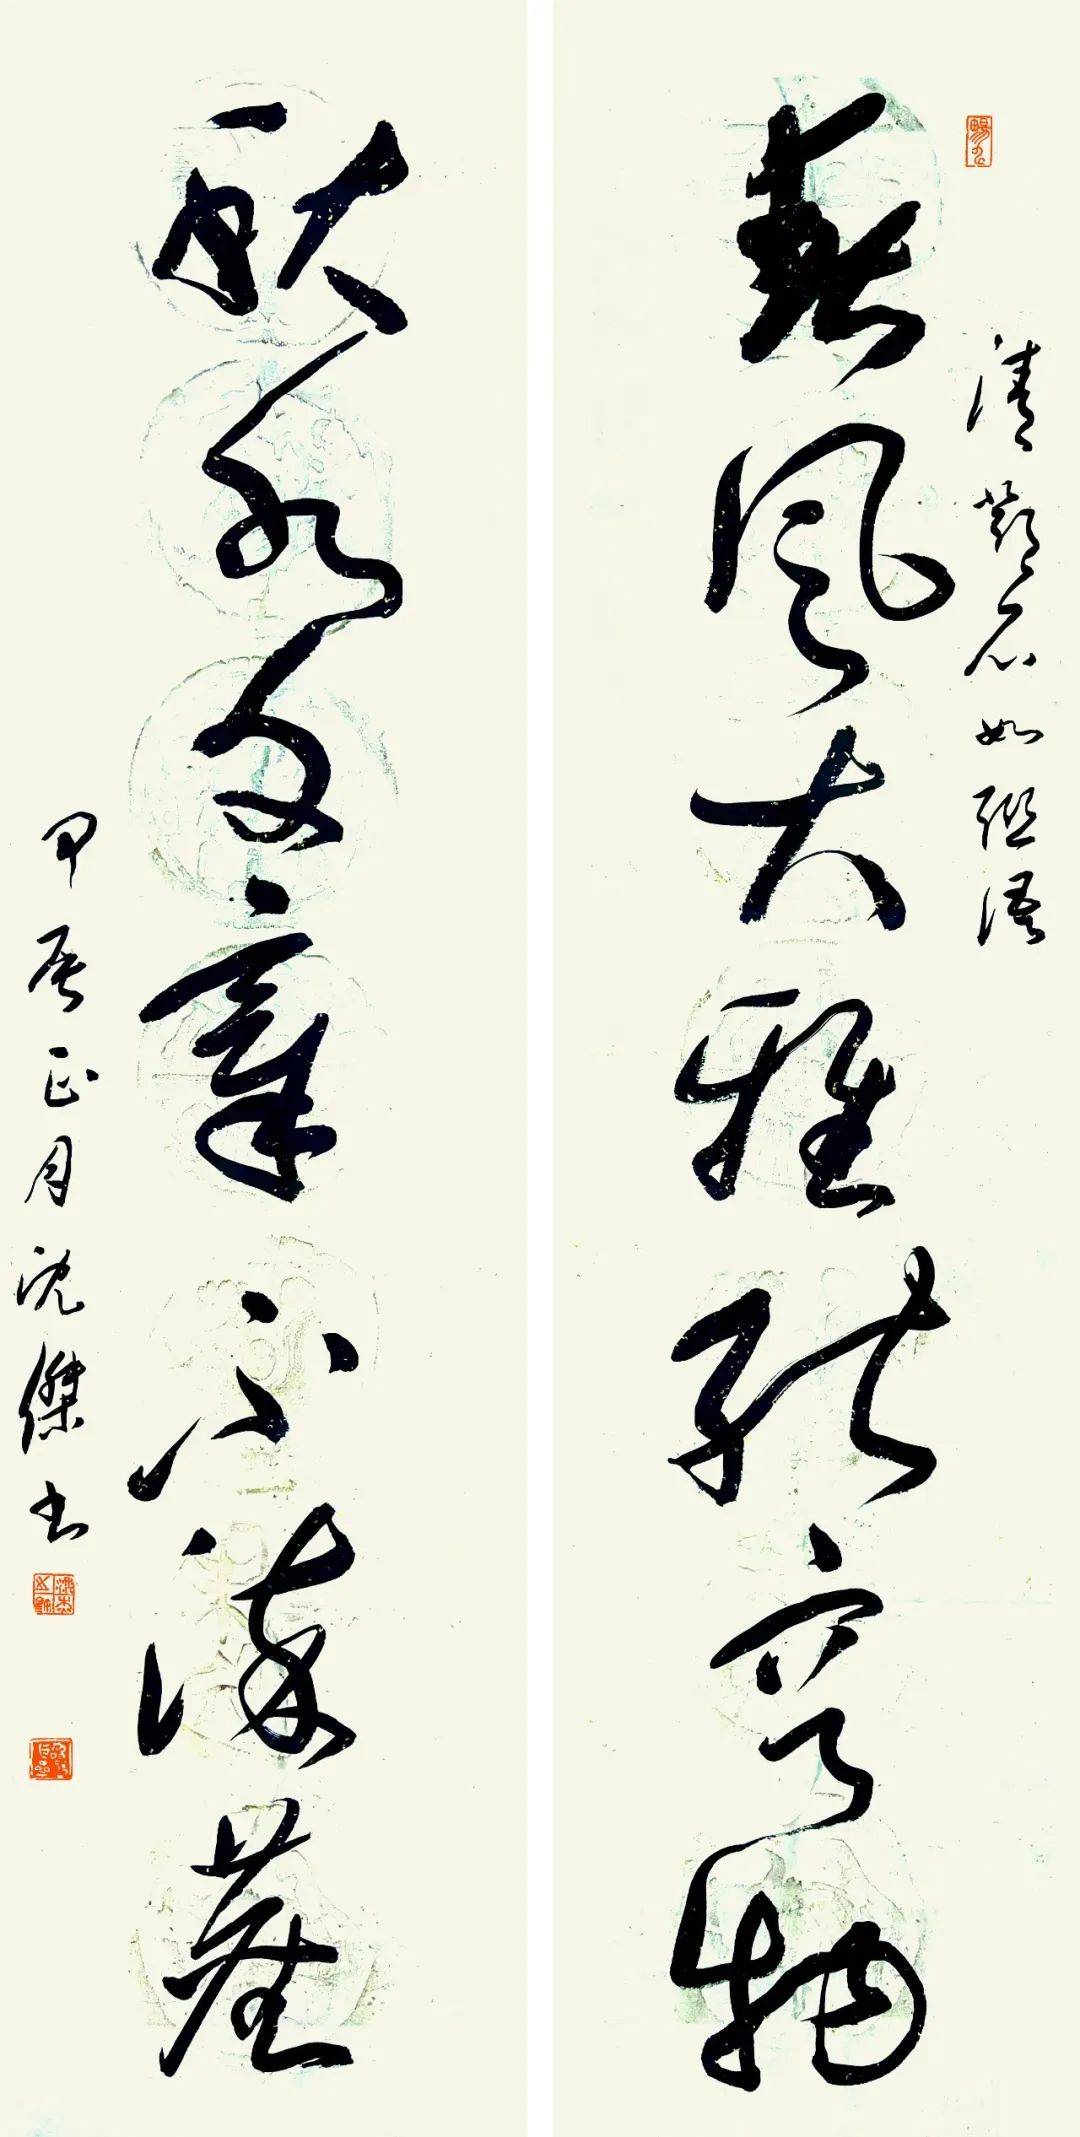 春風大雅能容物
清鄧石如聯語
秋水文章不染塵
甲辰正月沈傑書